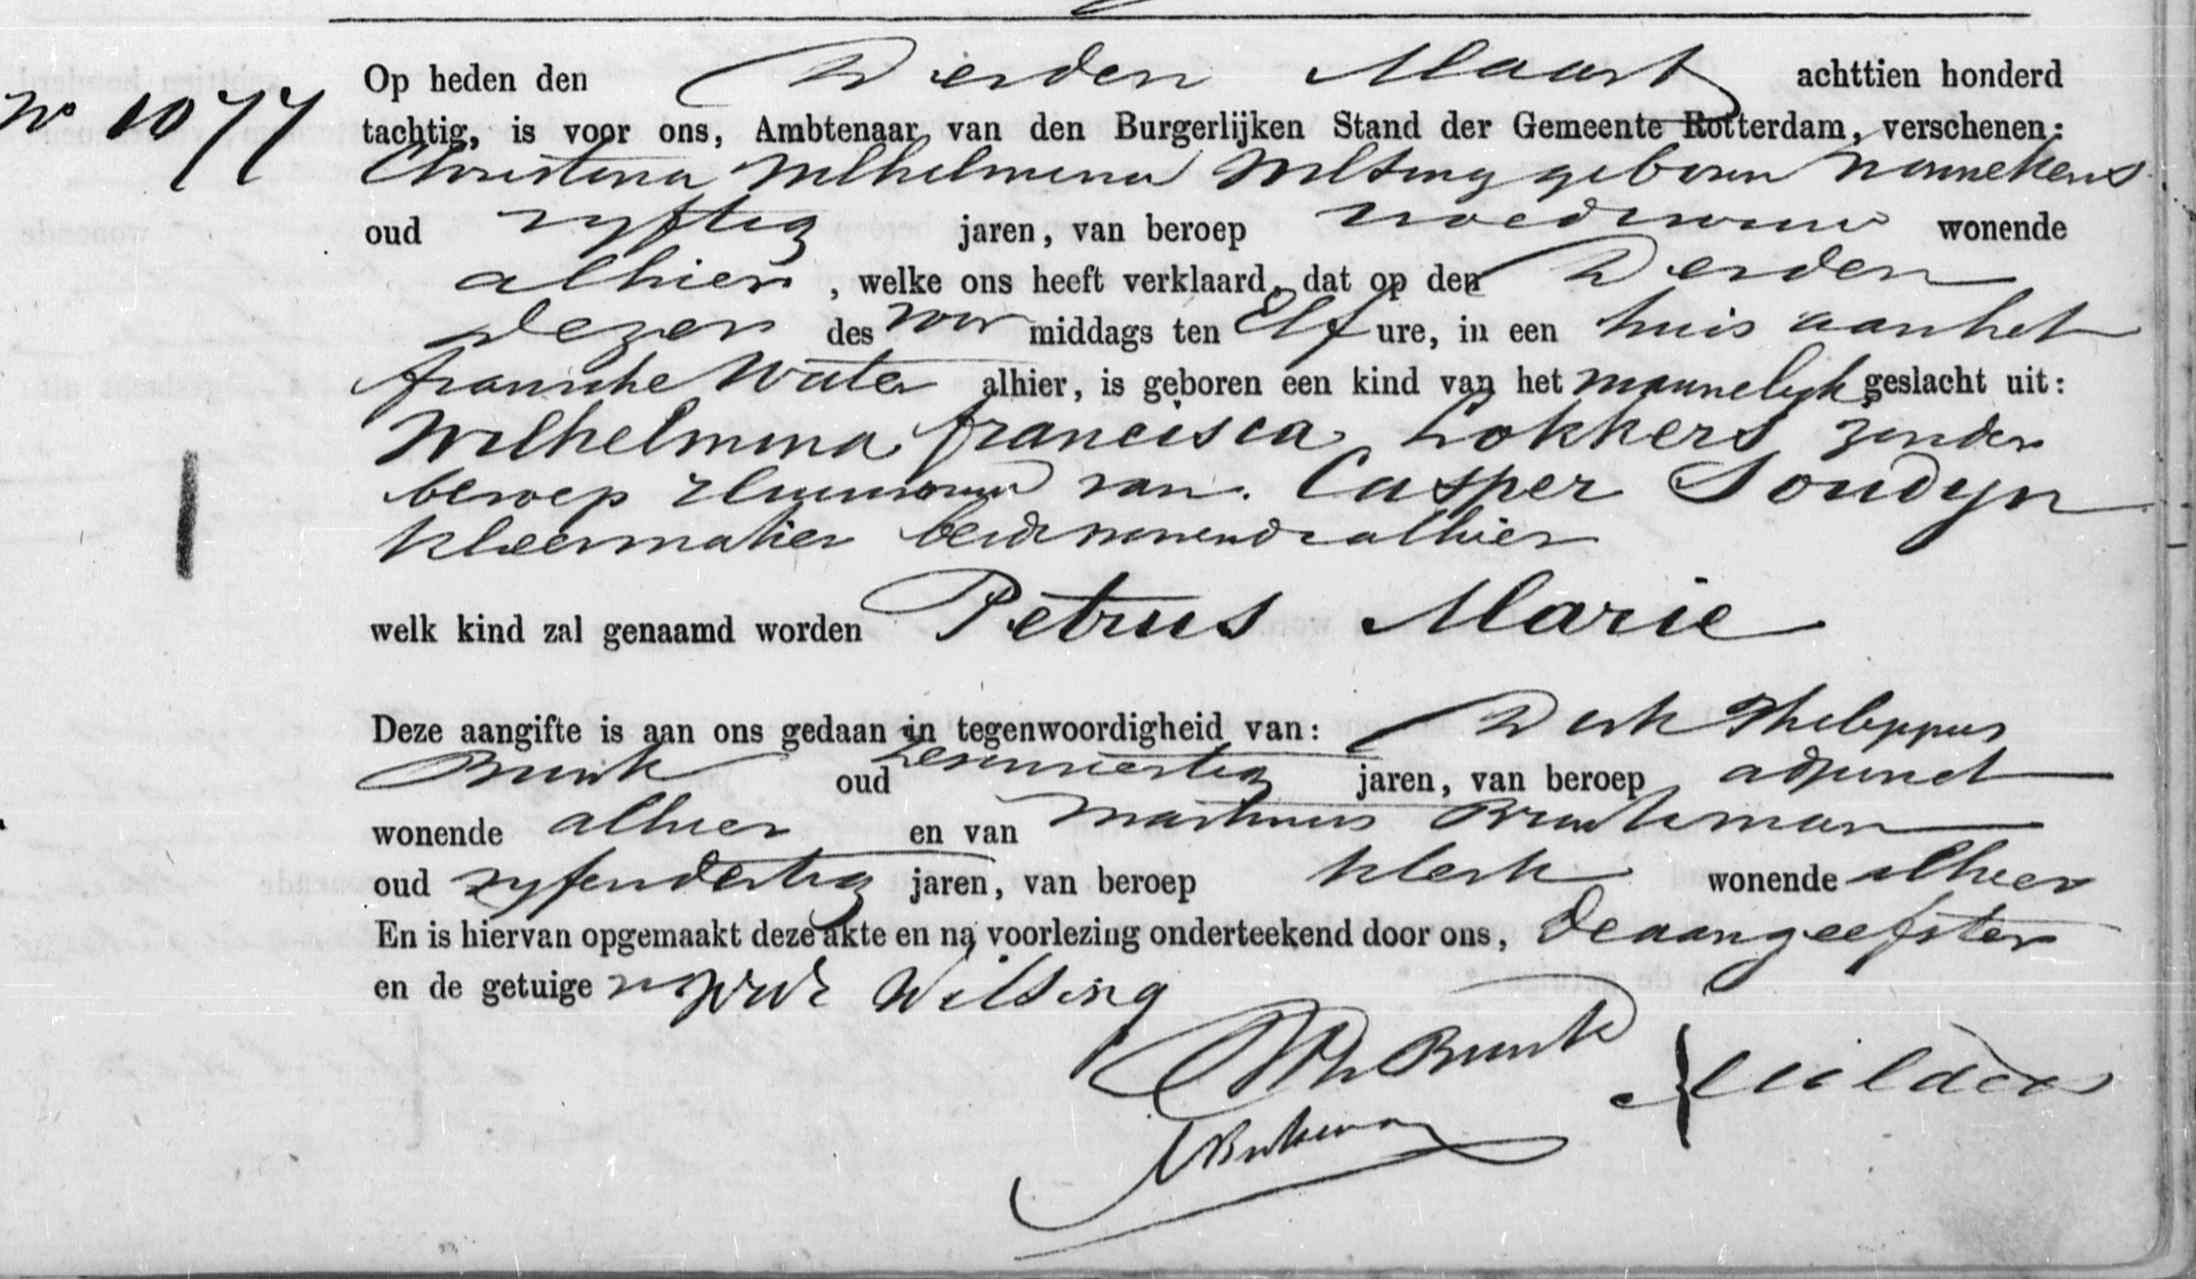 No 1077
Op heden den Derden Maart achttien honderd
tachtig, is voor ons, Ambtenaar van den Burgerlijken Stand der Gemeente Rotterdam, verschenen:
Christina Wilhelmina Wilsing geboren Nonnekens
oud vyftig jaren, van beroep vroedvrouw wonende
alhier, welke ons heeft verklaard, dat op den Derden
dezer des voor middags ten Elf ure, in een huis aan het
fransche Water alhier, is geboren een kind van het mannelyk geslacht uit:
Wilhelmina francisca Lokkers zonder
beroep huisvrouw van Casper Soudyn
kleermaker beide wonende alhier
welk kind zal genaamd worden Petrus Marie
Deze aangifte is aan ons gedaan in tegenwoordigheid van: Derk Philippus
Bunk oud zesenveertig jaren, van beroep adjunct
wonende alhier en van Martinus Brinkman
oud vyfendertig jaren, van beroep klerk wonende alhier
En is hiervan opgemaakt deze akte en na voorlezing onderteekend door ons, de aangeefster
en de getuigen Wilsing
Bunk